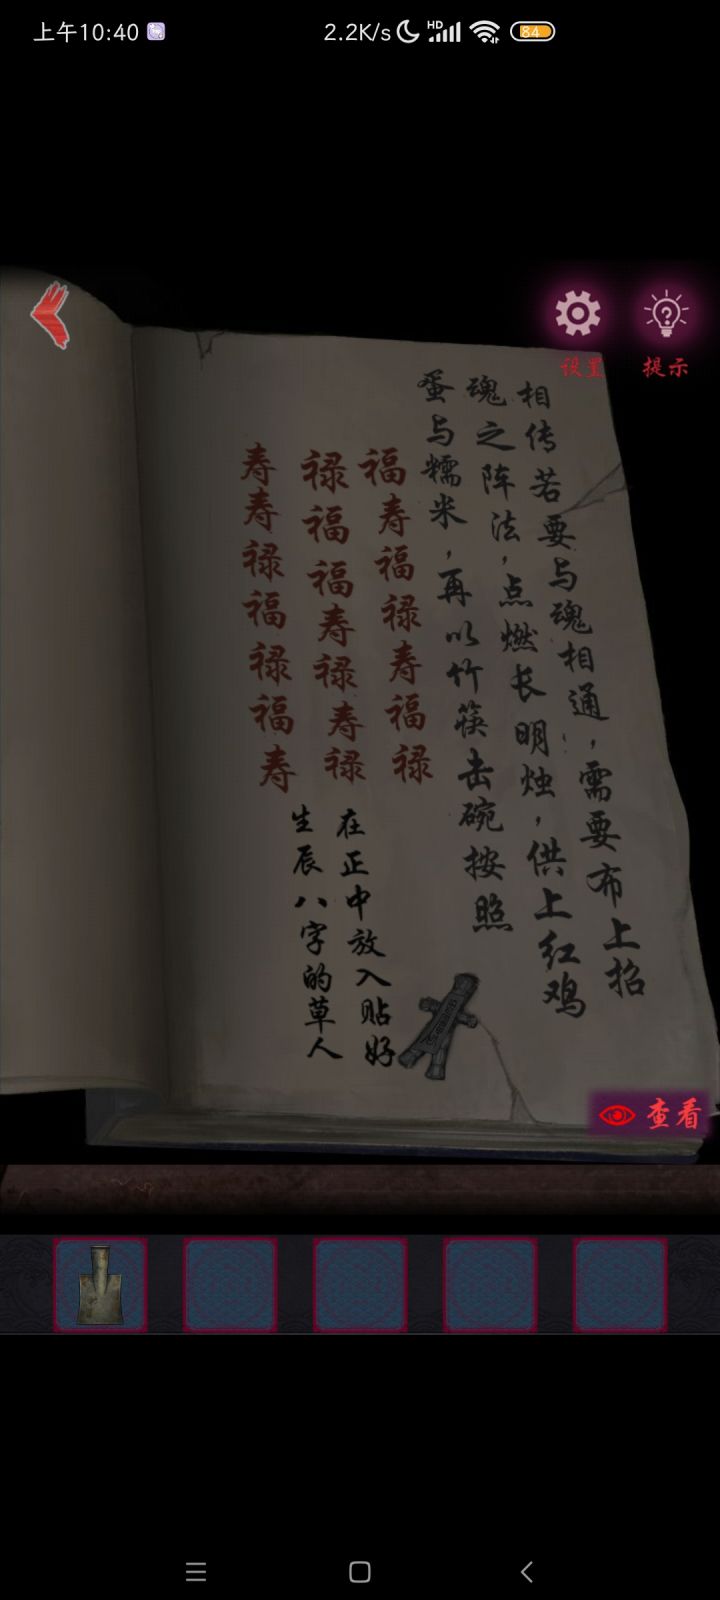 上午10:40
2.2K/s
HD
84
设置
提示
相传若要与魂相通，需要布上招
魂之阵法，点燃长明烛，供上红鸡
蛋与糯米，再以竹筷击碗按照
福寿福禄寿福禄
禄福福寿禄寿禄
寿寿禄福禄福寿
在正中放入贴好
生辰八字的草人
查看